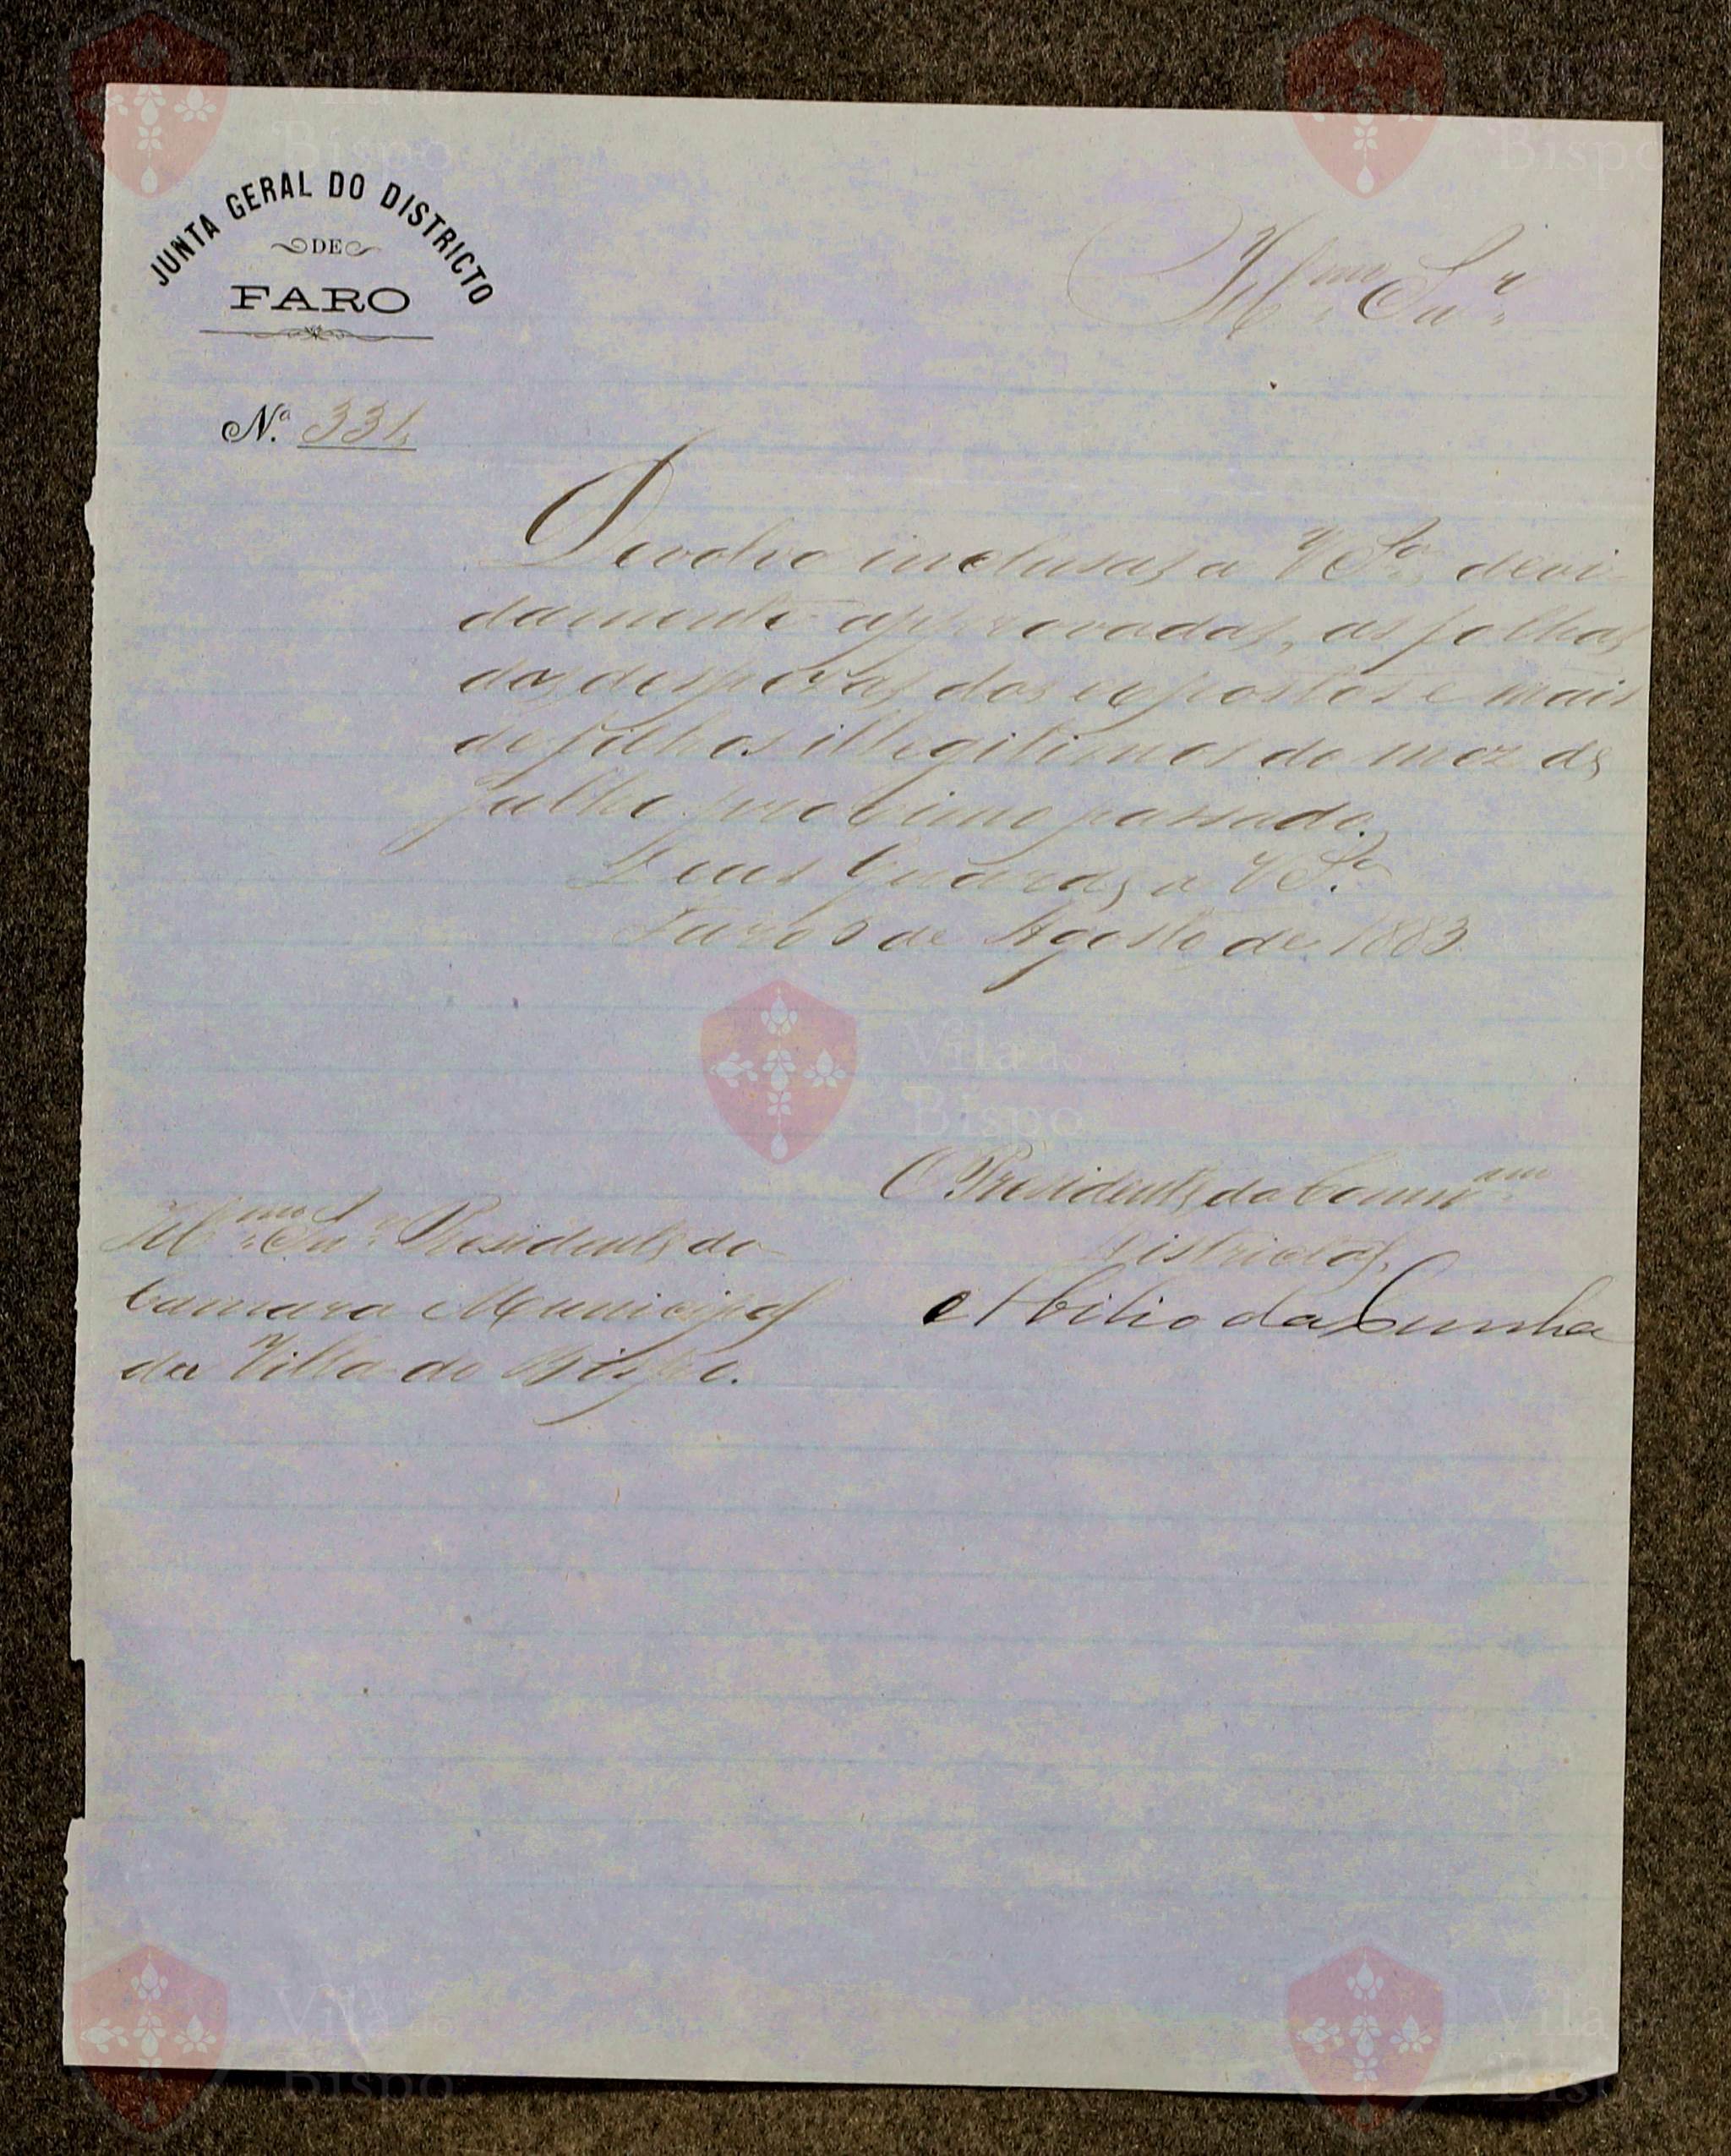 JUNTA GERAL DO DISTRICTO
DE
FARO
Ill.mo Snr.
N.º 331
Devolvo inclusas a V S.ª, devi-
damente approvadas, as folhas
das despezas dos expostos e mais
de filhos illegitimos do mez de
Julho proximo passado.
Deus Guarde a V S.ª
Faro 9 de Agosto de 1883
O Presidente da Comm.am
Districtal,
Abilio da Cunha
Ill.mo Snr. Presidente da
Camara Municipal
da Villa do Bispo.
Vila do
Bispo